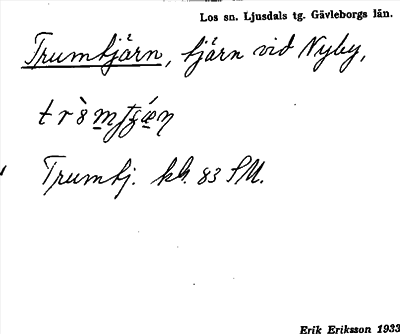 Los sn. Ljusdals tg. Gävleborgs län.
Trumtjärn, tjärn vid Nyby,
Trumtj. kb. 83 SM.
Erik Eriksson 1933